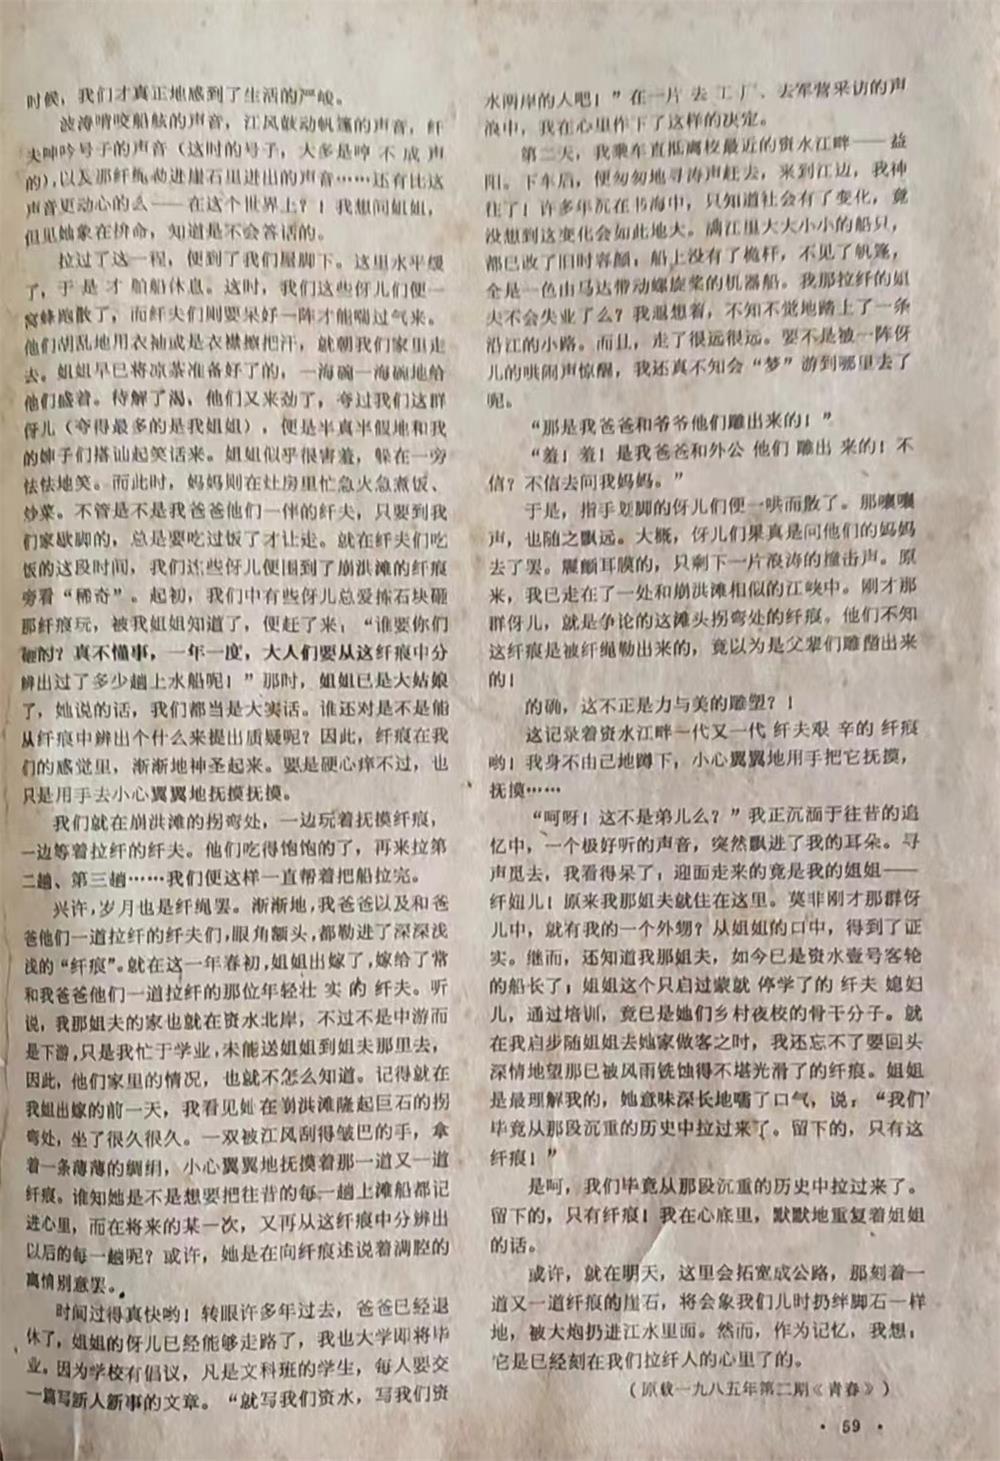 时候，我们才真正地感到了生活的严峻。
波涛啃咬船舷的声音，江风鼓动帆篷的声音，纤
夫呻吟号子的声音（这时的号子，大多是哼不成声
的），以及那纤绳勒进崖石里迸出的声音……还有比这
声音更动心的么——在这个世界上？！我想问姐姐，
但见她象在拚命，知道是不会答话的。
拉过了这一程，便到了我们屋脚下。这里水平缓
了，于是才船船休息。这时，我们这些伢儿们便一
窝蜂跑散了，而纤夫们则要呆好一阵才能喘过气来。
他们胡乱地用衣袖或是衣襟擦把汗，就朝我们家里走
去。姐姐早已将凉茶准备好了的，一海碗一海碗地给
他们盛着。待解了渴，他们又来劲了，夸过我们这群
伢儿（夸得最多的是我姐姐），便是半真半假地和我
的婶子们搭讪起笑话来。姐姐似乎很害羞，躲在一旁
怯怯地笑。而此时，妈妈则在灶房里忙急火急煮饭、
炒菜。不管是不是我爸爸他们一伴的纤夫，只要到我
们家歇脚的，总是要吃过饭了才让走。就在纤夫们吃
饭的这段时间，我们这些伢儿便围到了崩洪滩的纤痕
旁看“稀奇”。起初，我们中有些伢儿总爱拣石块砸
那纤痕玩，被我姐姐知道了，便赶了来：“谁要你们
砸的？真不懂事，一年一度，大人们要从这纤痕中分
辨出过了多少趟上水船呢！”那时，姐姐已是大姑娘
了，她说的话，我们都当是大实话。谁还对是不是能
从纤痕中辨出个什么来提出质疑呢？因此，纤痕在我
们的感觉里，渐渐地神圣起来。要是硬心痒不过，也
只是用手去小心翼翼地抚摸抚摸。
我们就在崩洪滩的拐弯处，一边玩着抚摸纤痕，
一边等着拉纤的纤夫。他们吃得饱饱的了，再来拉第
二趟、第三趟……我们便这样一直帮着把船拉完。
兴许，岁月也是纤绳罢。渐渐地，我爸爸以及和爸
爸他们一道拉纤的纤夫们，眼角额头，都勒进了深深浅
浅的“纤痕”。就在这一年春初，姐姐出嫁了，嫁给了常
和我爸爸他们一道拉纤的那位年轻壮实的纤夫。听
说，我那姐夫的家也就在资水北岸，不过不是中游而
是下游，只是我忙于学业，未能送姐姐到姐夫那里去，
因此，他们家里的情况，也就不怎么知道。记得就在
我姐出嫁的前一天，我看见她在崩洪滩隆起巨石的拐
弯处，坐了很久很久。一双被江风刮得皱巴的手，拿
着一条薄薄的绸绢，小心翼翼地抚摸着那一道又一道
纤痕。谁知她是不是想要把往昔的每一趟上滩船都记
进心里，而在将来的某一次，又再从这纤痕中分辨出
以后的每一趟呢？或许，她是在向纤痕述说着满腔的
离情别意罢。
时间过得真快哟！转眼许多年过去，爸爸已经退
休了，姐姐的伢儿已经能够走路了，我也大学即将毕
业。因为学校有倡议，凡是文科班的学生，每人要交
一篇写新人新事的文章。“就写我们资水，写我们资
水两岸的人吧！”在一片去工厂、去军营采访的声
浪中，我在心里作下了这样的决定。
第二天，我乘车直抵离校最近的资水江畔——益
阳。下车后，便匆匆地寻涛声赶去，来到江边，我神
往了！许多年沉在书海中，只知道社会有了变化，竟
没想到这变化会如此地大。满江里大大小小的船只，
都已改了旧时容颜，船上没有了桅杆，不见了帆篷，
全是一色由马达带动螺旋桨的机器船。我那拉纤的姐
夫不会失业了么？我遐想着，不知不觉地踏上了一条
沿江的小路。而且，走了很远很远。要不是被一阵伢
儿的哄闹声惊醒，我还真不知会“梦”游到哪里去了
呢。
“那是我爸爸和爷爷他们雕出来的！”
“羞！羞！是我爸爸和外公他们雕出来的！不
信？不信去问我妈妈。”
于是，指手划脚的伢儿们便一哄而散了。那嚷嚷
声，也随之飘远。大概，伢儿们果真是问他们的妈妈
去了罢。震颤耳膜的，只剩下一片浪涛的撞击声。原
来，我已走在了一处和崩洪滩相似的江峡中。刚才那
群伢儿，就是争论的这滩头拐弯处的纤痕。他们不知
这纤痕是被纤绳勒出来的，竟以为是父辈们雕凿出来
的！
的确，这不正是力与美的雕塑？！
这记录着资水江畔一代又一代纤夫艰辛的纤痕
哟！我身不由己地蹲下，小心翼翼地用手把它抚摸，
抚摸……
“呵呀！这不是弟儿么？”我正沉湎于往昔的追
忆中，一个极好听的声音，突然飘进了我的耳朵。寻
声觅去，我看得呆了；迎面走来的竟是我的姐姐——
纤妞儿！原来我那姐夫就住在这里。莫非刚才那群伢
儿中，就有我的一个外甥？从姐姐的口中，得到了证
实。继而，还知道我那姐夫，如今已是资水壹号客轮
的船长了；姐姐这个只启过蒙就停学了的纤夫媳妇
儿，通过培训，竟已是她们乡村夜校的骨干分子。就
在我启步随姐姐去她家做客之时，我还忘不了要回头
深情地望那已被风雨铣蚀得不堪光滑了的纤痕。姐姐
是最理解我的，她意味深长地嘘了口气，说：“我们
毕竟从那段沉重的历史中拉过来了。留下的，只有这
纤痕！”
是呵，我们毕竟从那段沉重的历史中拉过来了。
留下的，只有纤痕！我在心底里，默默地重复着姐姐
的话。
或许，就在明天，这里会拓宽成公路，那刻着一
道又一道纤痕的崖石，将会象我们儿时扔绊脚石一样
地，被大炮扔进江水里面。然而，作为记忆，我想：
它是已经刻在我们拉纤人的心里了的。
（原载一九八五年第二期《青春》）
· 59 ·